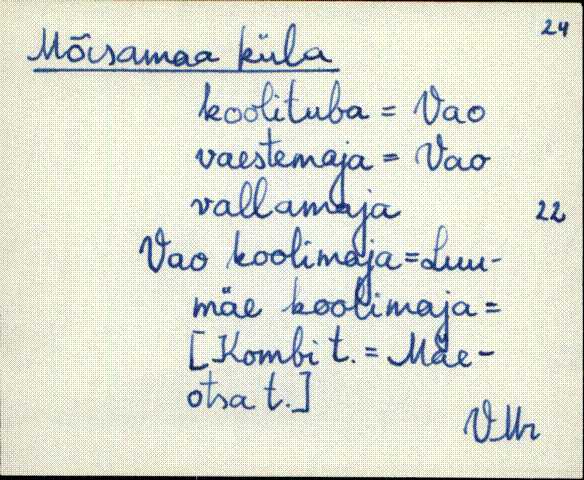 24
Mõisamaa küla
koolituba = Vao
vaestemaja = Vao
vallamaja 22
Vao koolimaja = Luu-
mäe koolimaja =
[Kombi t. = Mäe-
otsa t.]
VMr